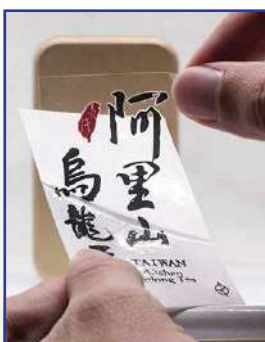 阿里山
烏龍
TAIWAN
Alishan
Oolong Tea